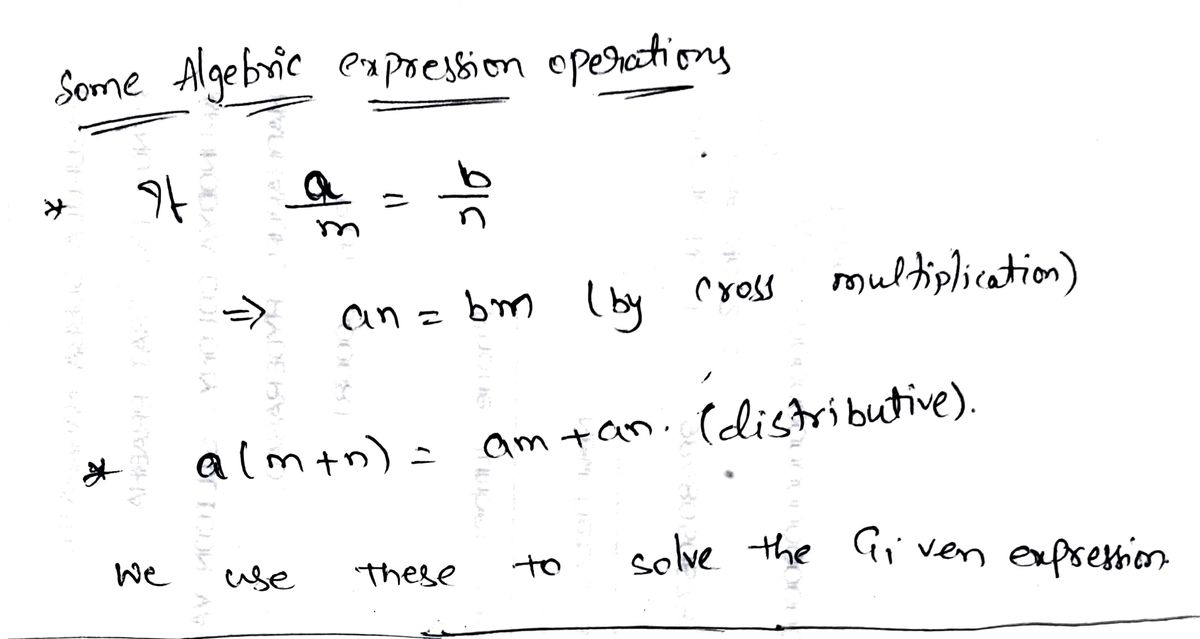 Some Algebric expression operations
* If a/m = b/n
⇒ an = bm (by cross multiplication)
* a(m+n) = am + an. (distributive).
We use these to solve the Given expression.